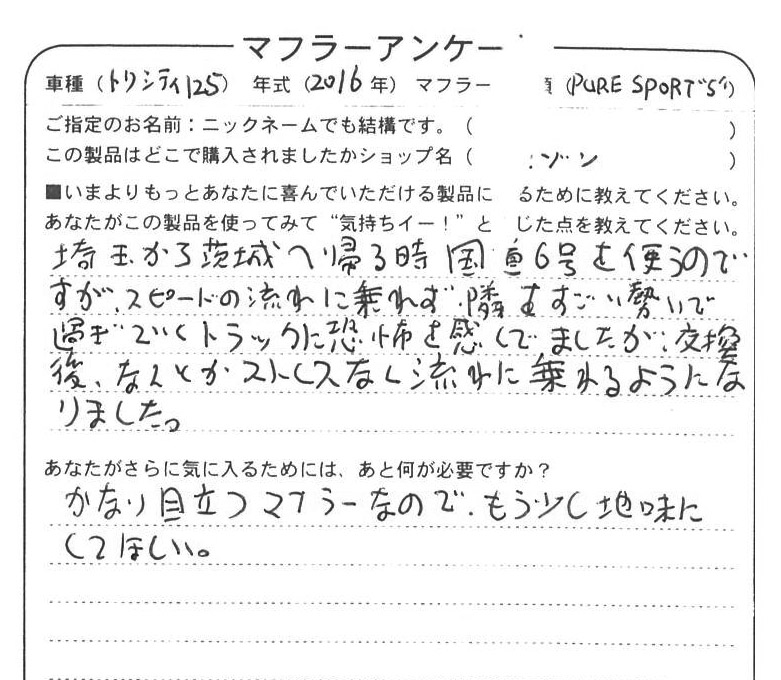 マフラーアンケー
車種（トリシティ125） 年式（2016年） マフラー 項（PURE SPORT"S"）
ご指定のお名前：ニックネームでも結構です。（ ）
この製品はどこで購入されましたかショップ名（ ゾン ）
■いまよりもっとあなたに喜んでいただける製品に るために教えてください。
あなたがこの製品を使ってみて“気持ちイー！”と じた点を教えてください。
埼玉から茨城へ帰る時国道6号を使うので
すが、スピードの流れに乗れず、隣をすごい勢いで
過ぎていくトラックに恐怖を感じてましたが、交換
後、なんとかストレスなく流れに乗れるようにな
りました。
あなたがさらに気に入るためには、あと何が必要ですか？
かなり目立つマフラーなので、もう少し地味に
してほしい。